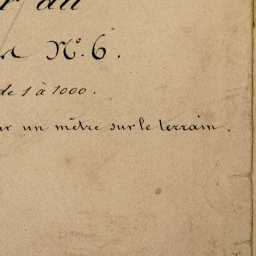 au
N.º 6.
de 1 à 1000.
ur un mètre sur le terrain.